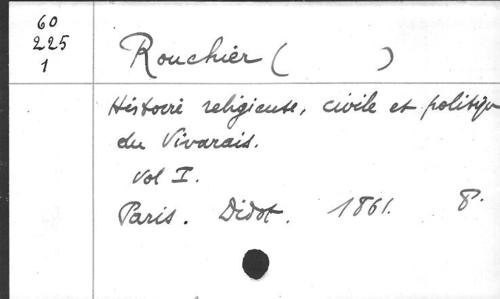 60
225
1
Rouchier ( )
Histoire religieuse, civile et politique
du Vivarais.
Vol I.
Paris. Didot. 1861. 8.